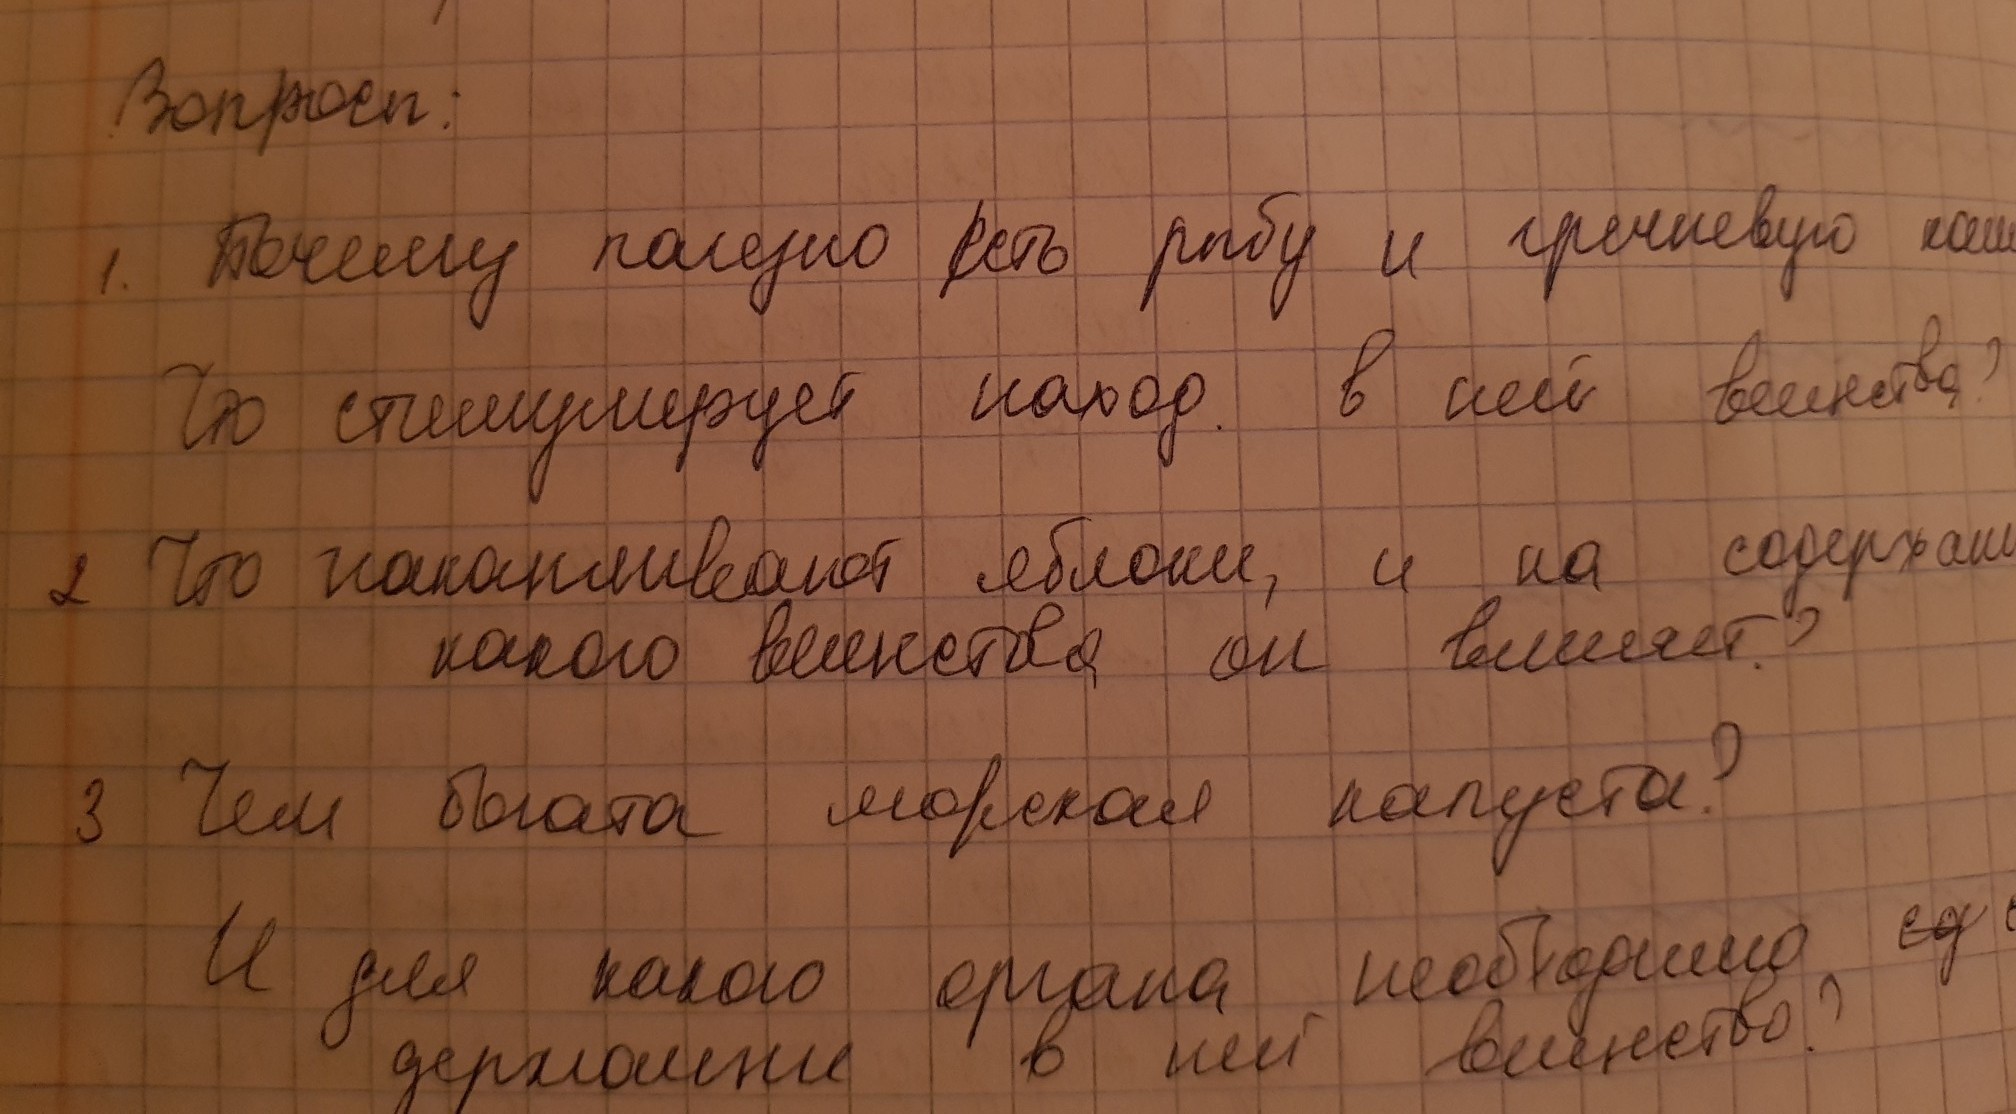 Вопросы:
1. Почему полезно есть рыбу и гречневую каш
Что стимулирует наход. в ней вещества?
2 Что накапливают яблоки, и на содержани
какого вещества он влияет?
3 Чем богата морская капуста?
И для какого органа необходимо
держание в ней вещество?